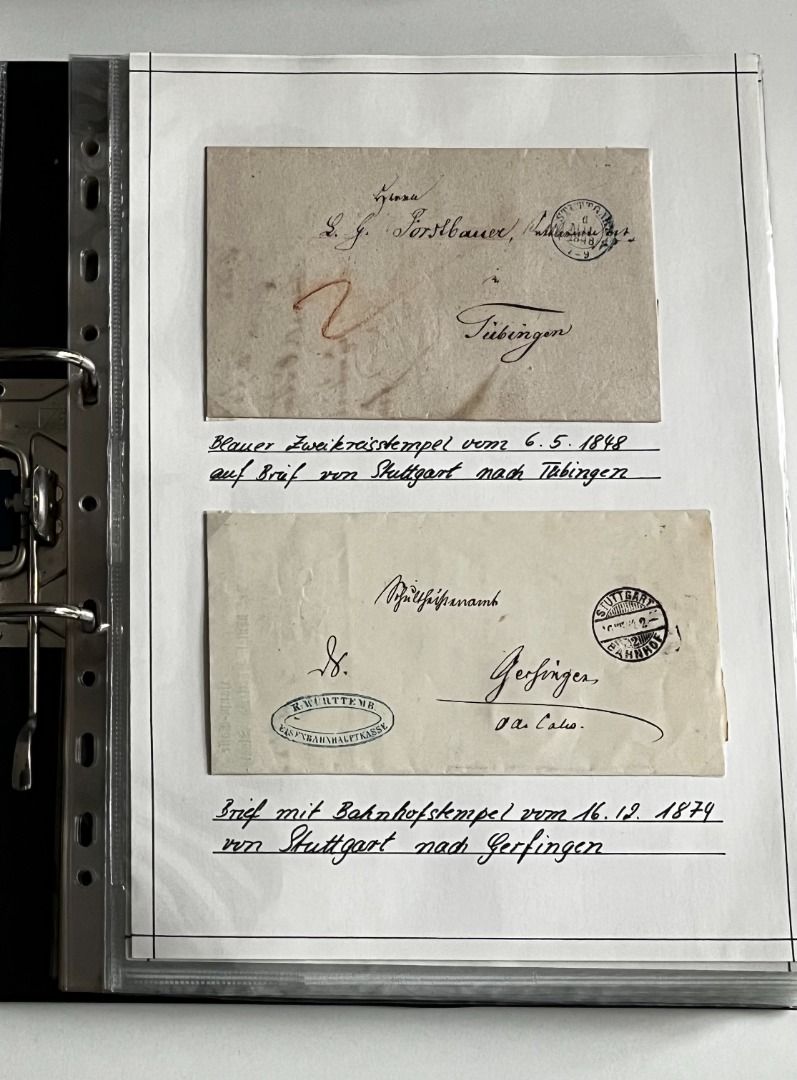 Herrn
L. G. Forstbauer,
in
Tübingen
STUTTGART
6
1848
7-9
2
Blauer Zweikreisstempel vom 6.5.1848
auf Brief von Stuttgart nach Tübingen
Schultheißenamt
Gerfingen
STUTTGART
BAHNHOF
K.WÜRTTEMB.
EISENBAHNHAUPTKASSE
Brief mit Bahnhofstempel vom 16.12.1879
von Stuttgart nach Gerfingen